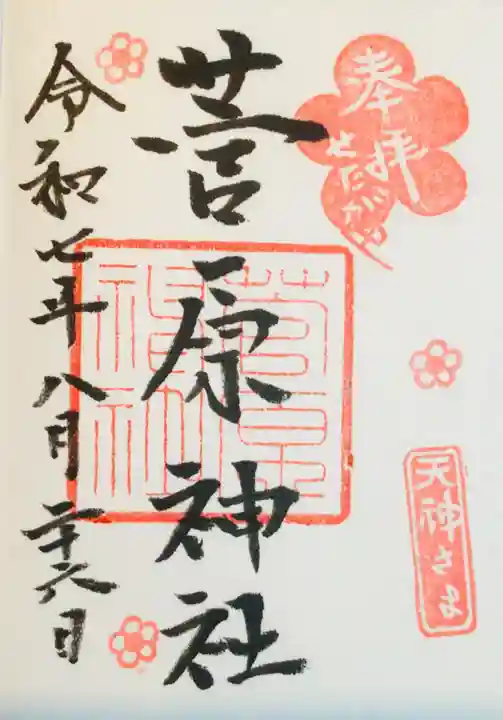 奉拝
天神さま
菅原神社
菅原
神社
令和七年八月二十六日